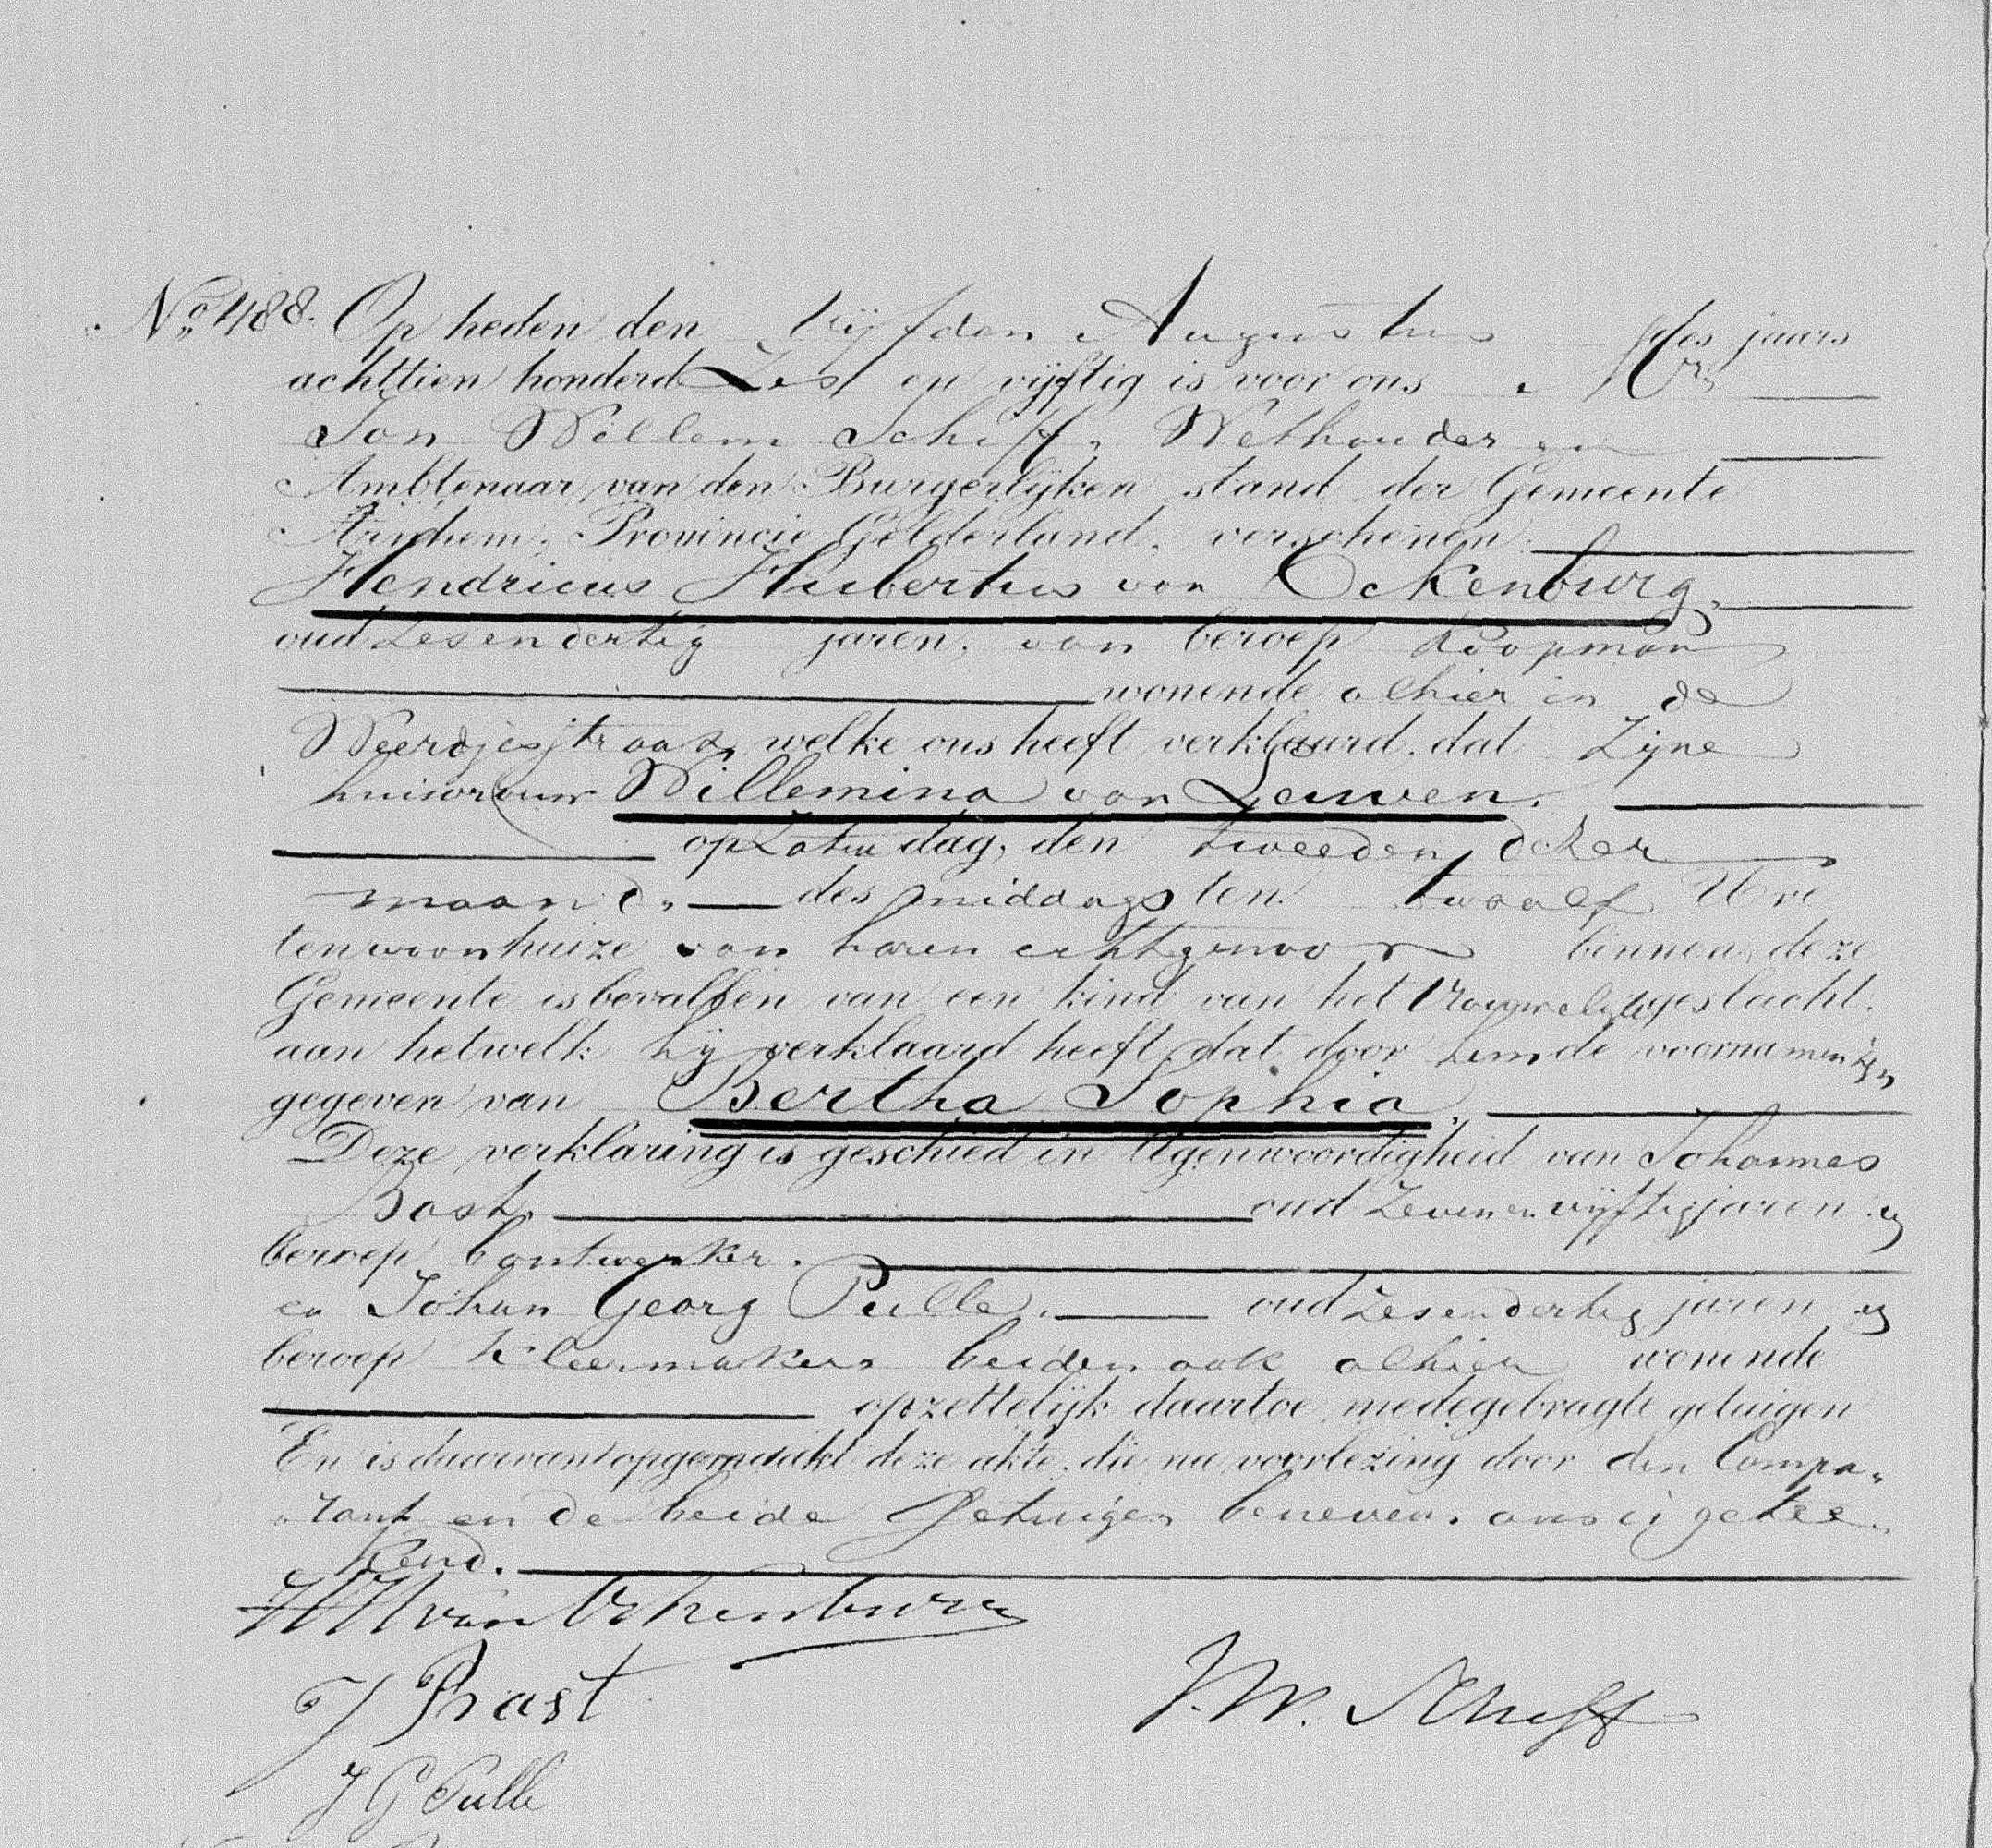 No. 488. Op heden den vijfden Augustus des jaars
achttien honderd Zes en vijftig is voor ons Mr
Jan Willem Schiff, Wethouder en
Ambtenaar van den Burgerlijken stand der Gemeente
Arnhem, Provincie Gelderland, verschenen
Hendricus Hubertus van Ockenburg,
oud zesendertig jaren, van beroep Koopman
wonende alhier in de
Weerdjesstraat, welke ons heeft verklaard, dat Zijne
huisvrouw Willemina van Leuven,
op Zaturdag, den tweeden dezer
maand, des middags ten twaalf Ure
ten woonhuize van haren echtgenoot binnen deze
Gemeente is bevallen van een kind van het Vrouwelijk geslacht,
aan hetwelk hij verklaard heeft, dat door hem de voornamen zijn
gegeven van Bertha Sophia,
Deze verklaring is geschied in tegenwoordigheid van Johannes
Bast, oud Zevenenvijftig jaren
beroep bontwerker,
en Johan Georg Pulle, oud Zesendertig jaren
beroep kleermaker beiden ook alhier wonende
opzettelijk daartoe medegebragte getuigen
En is daarvan opgemaakt deze akte, die na voorlezing door den Compa„
„rant en de beide Getuigen benevens ons is getee„
kend.
HH van Ockenburg
J Bast
J. W. Schiff
J G Pulle